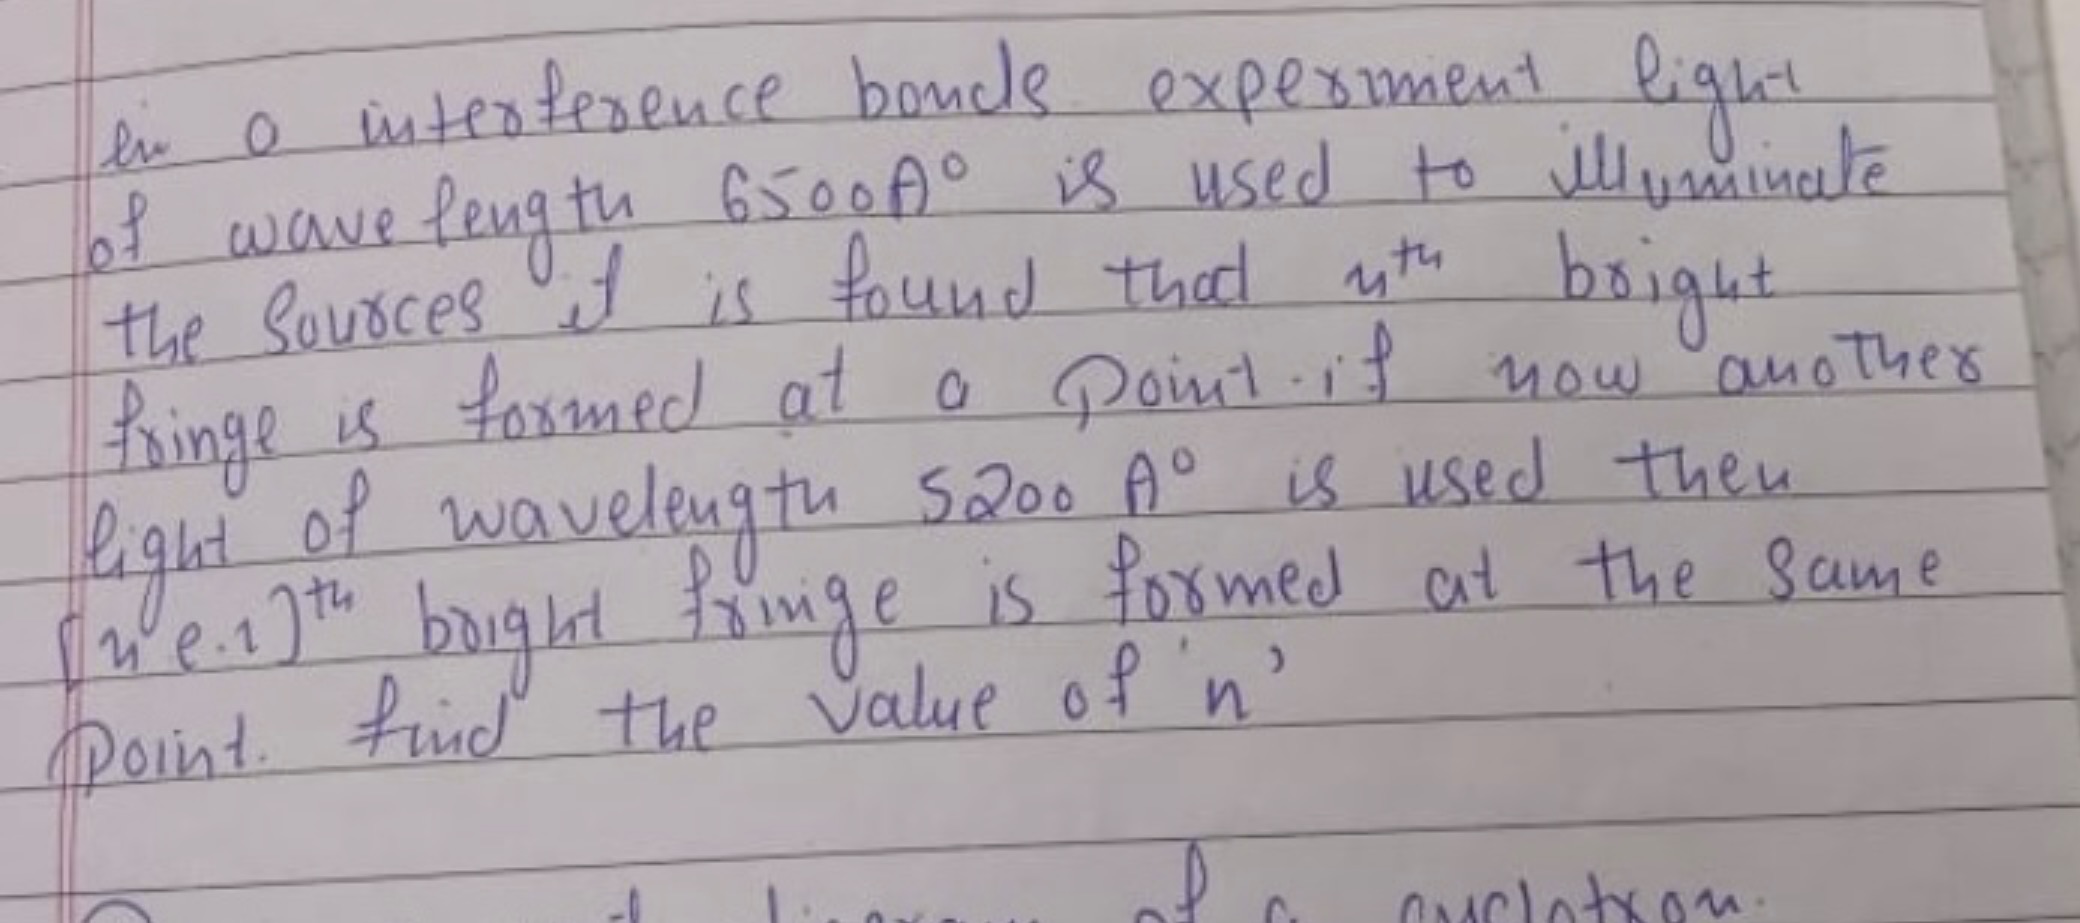 in a interference bands experiment light
of wave length 6500A° is used to illuminate
the sources it is found that nth bright
fringe is formed at a point. if now another
light of wavelength 5200 A° is used then
[n e.1)th bright fringe is formed at the same
Point. find the value of 'n'
of a cyclotron.